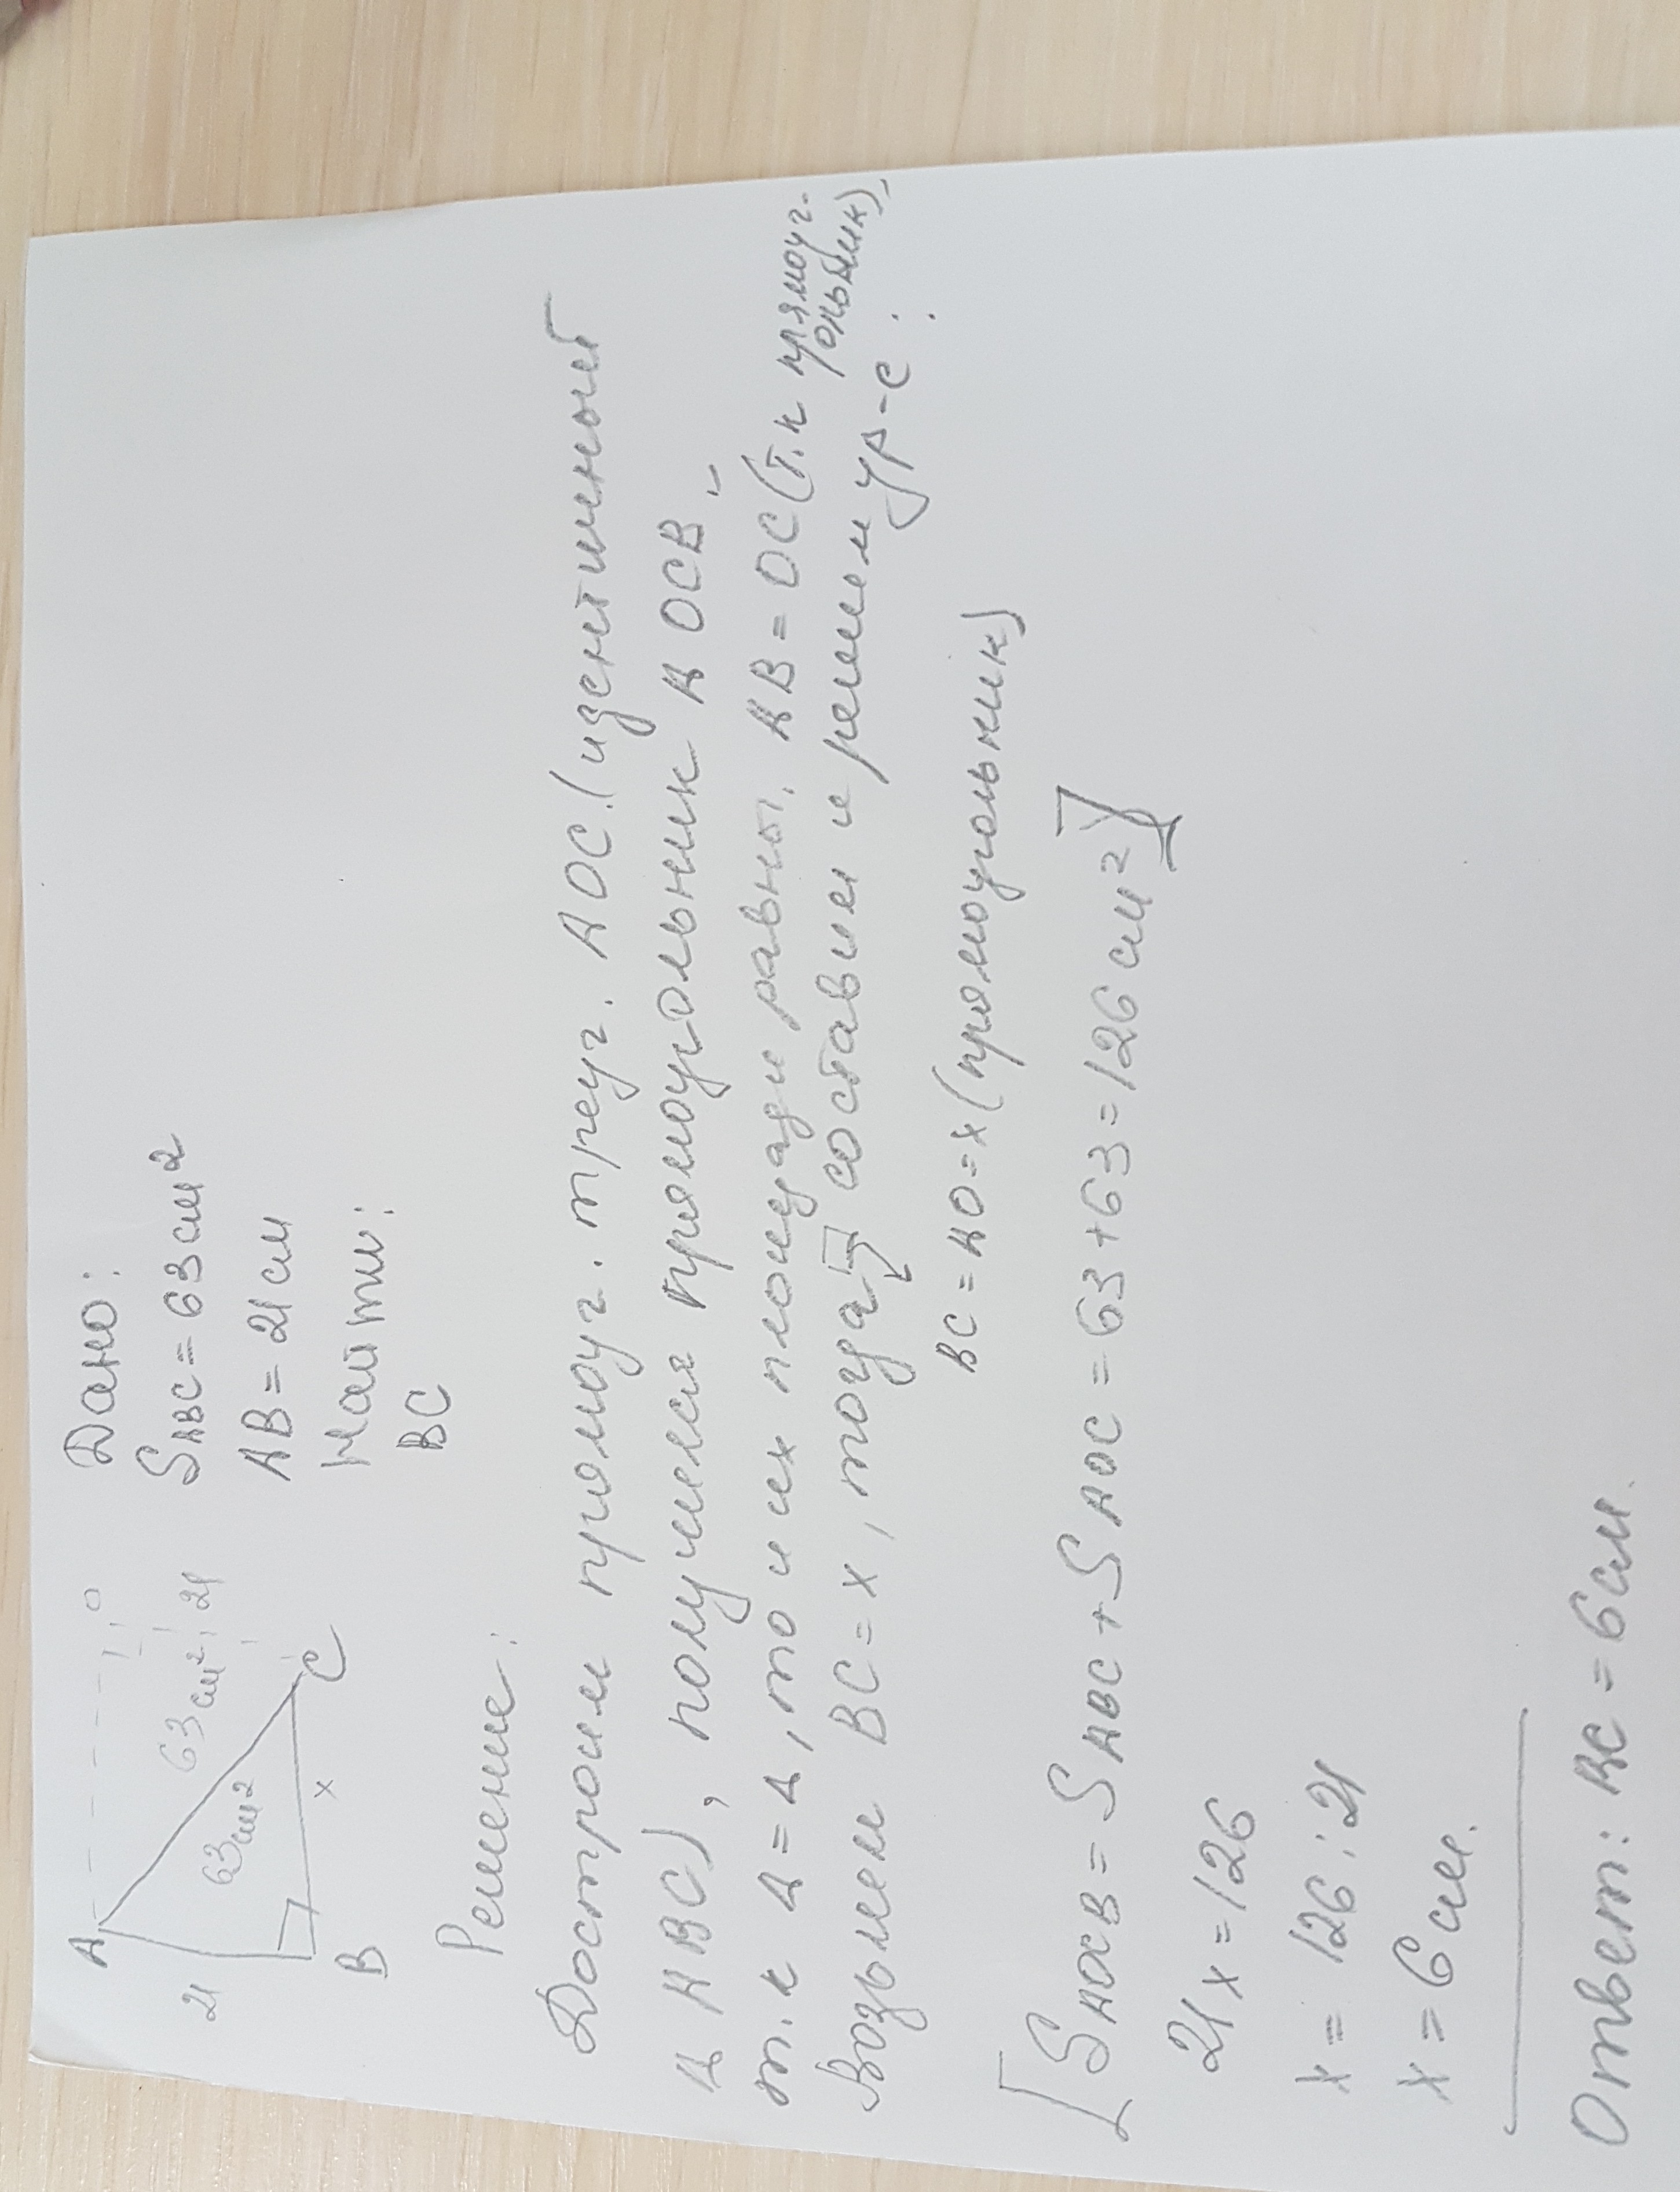 A
O
21
63см²
63см²
21
B
x
C
Дано:
SABC = 63см²
AB = 21см
Найти:
BC
Решение:
Достроим прямоуг. треуг. AOC.(идентичный
∆ ABC), получился прямоугольник AOCB,
т.к ∆ = ∆, то и их площади равны. AB = OC (т.к прямоуг-
ольник),
Возьмем BC = x, тогда составим и решим ур-е:
BC = AO = x (прямоугольник)
[SAOCB = SABC + SAOC = 63 + 63 = 126 см²]
21x = 126
x = 126 : 21
x = 6 см.
Ответ: BC = 6см.